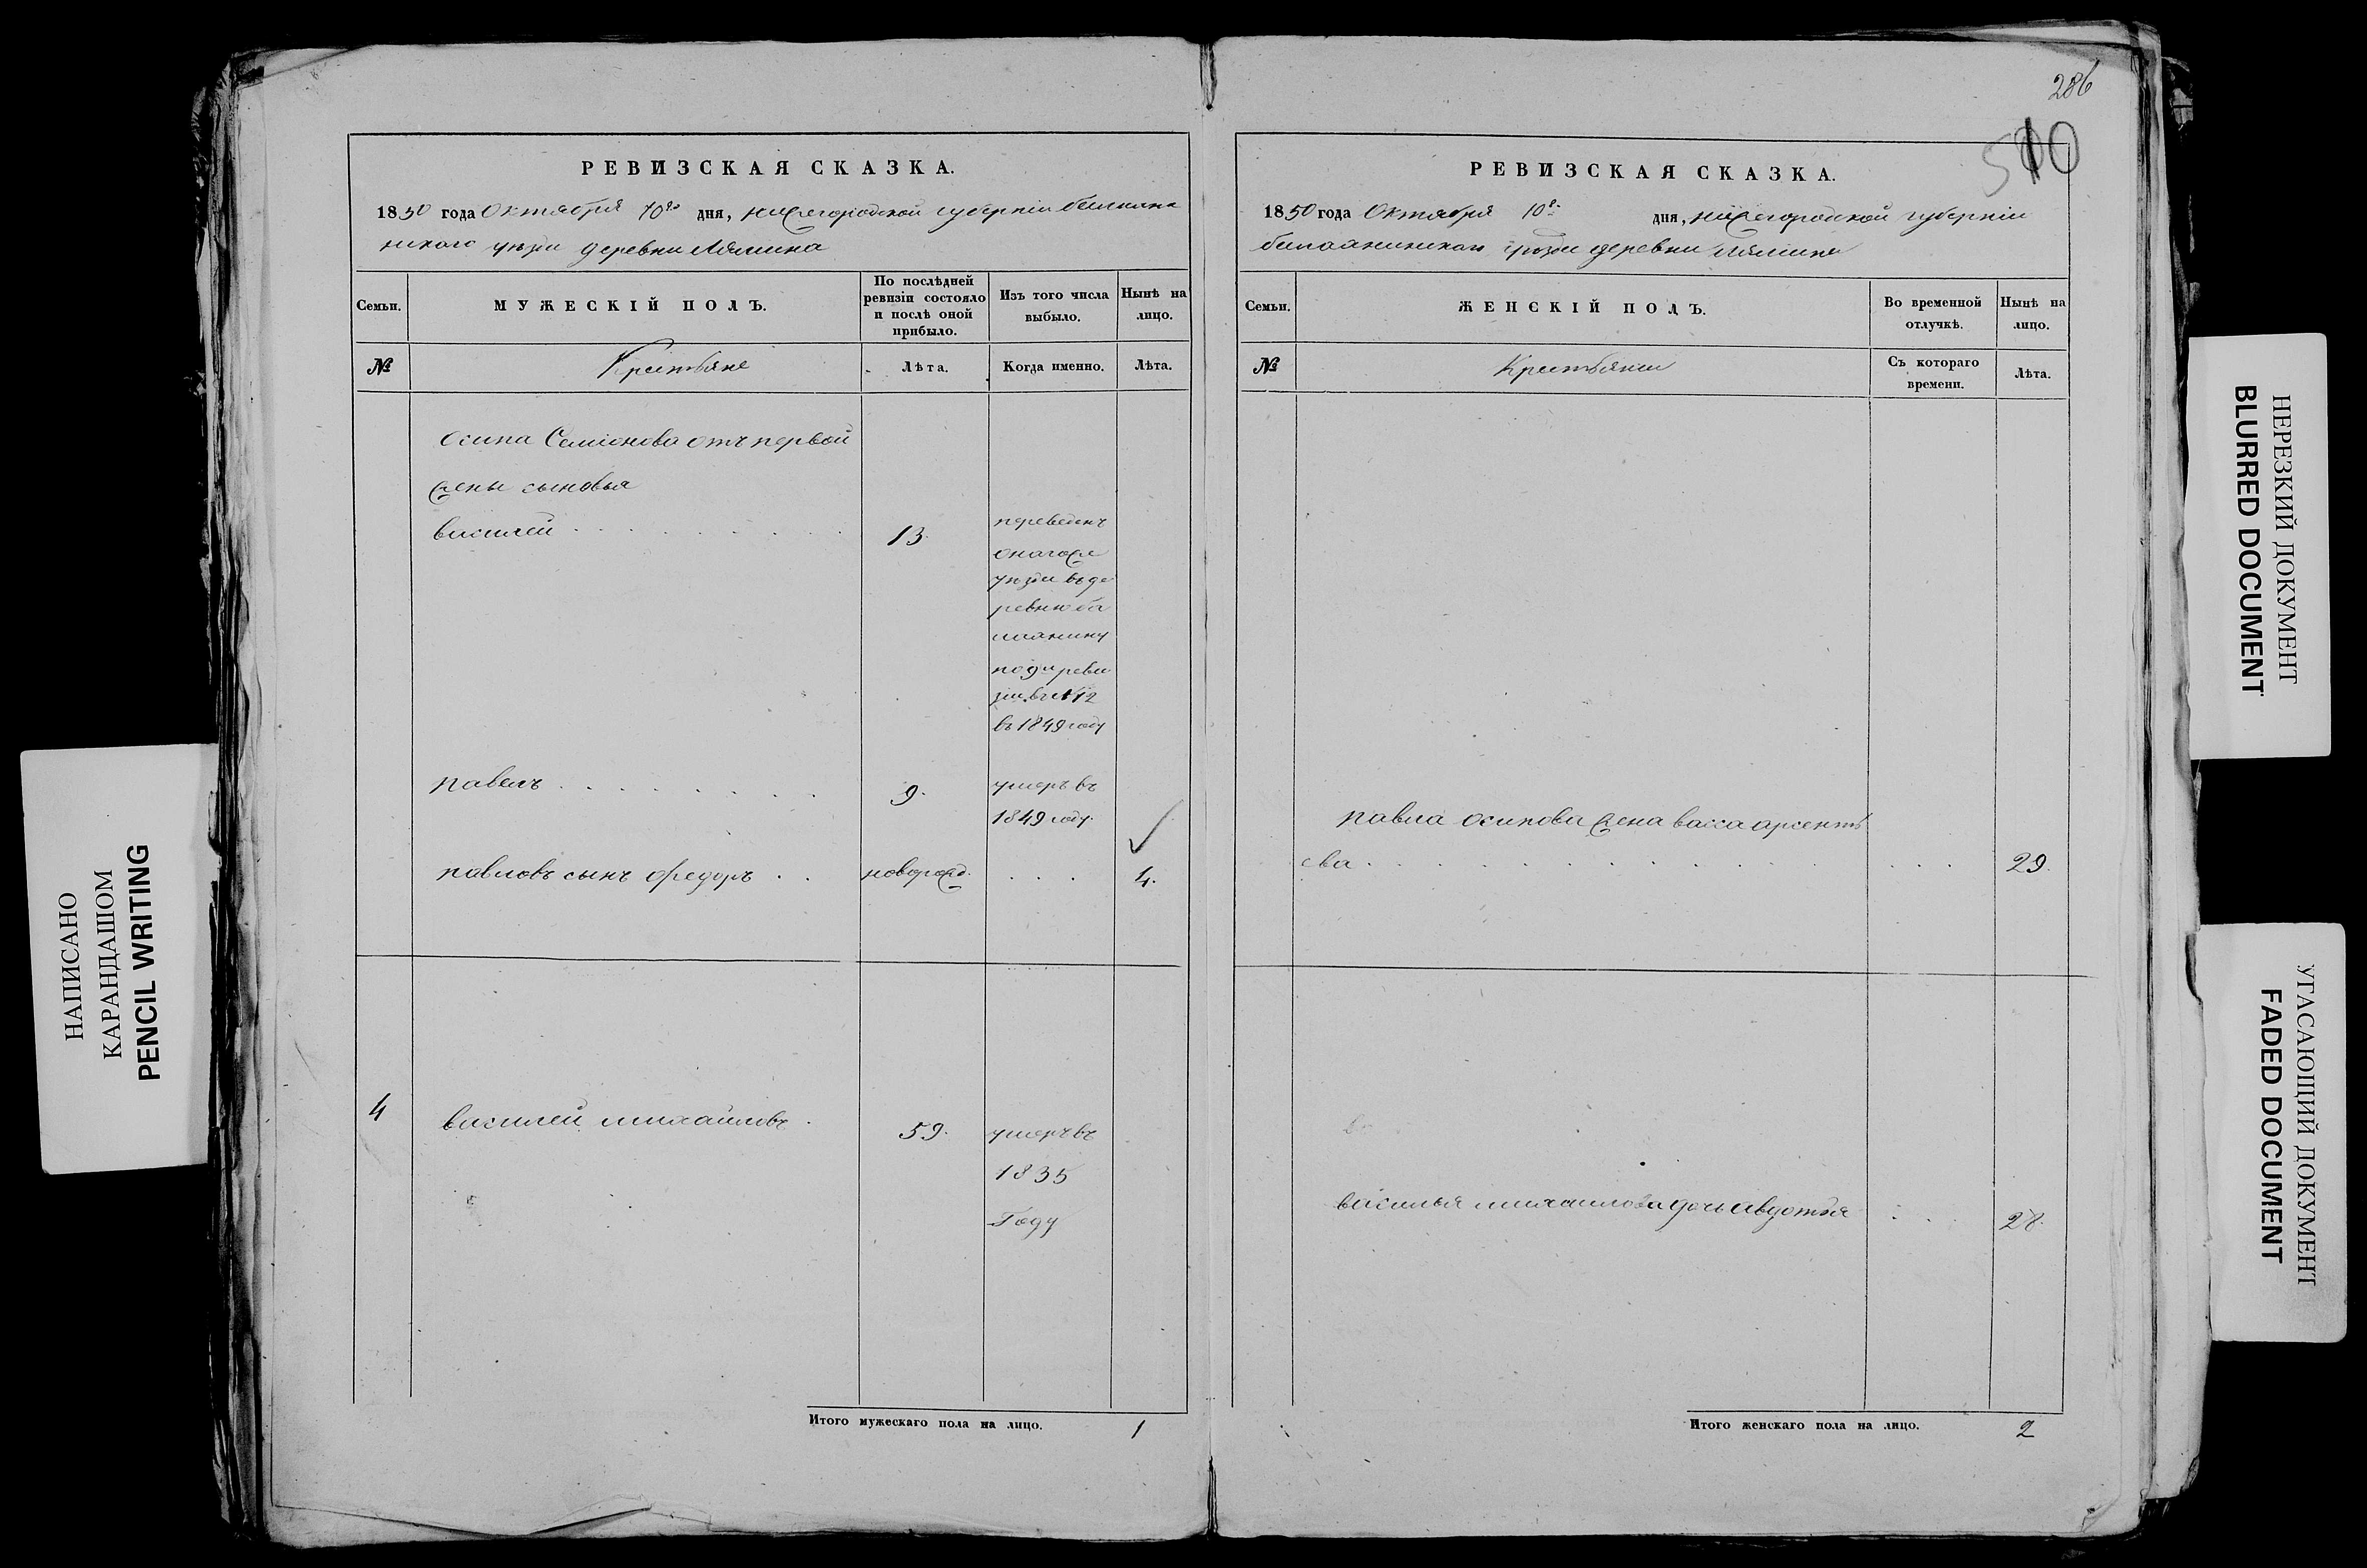 286
510
РЕВИЗСКАЯ СКАЗКА.
1850 года Октября 10го дня, нижегородской губернии балахни
нскаго уезда деревни Лямина
Семьи.
МУЖЕСКІЙ ПОЛЪ.
По послѣдней ревизіи состояло и послѣ оной прибыло.
Изъ того числа выбыло.
Нынѣ на лицо.
№
Крестьяне
Лѣта.
Когда именно.
Лѣта.
осипа Семіонова отъ первой
жены сыновья
василей
13.
переведенъ
онагоже
уезда въ де
ревню
по 9й реви
зіи въ № 12
въ 1849 году
павелъ
9.
умеръ въ
1849 году.
павловъ сынъ федоръ
новорожд.
4.
4
василей михайловъ.
59.
умеръ въ
1835
Году
Итого мужескаго пола на лицо. 1
РЕВИЗСКАЯ СКАЗКА.
1850 года Октября 10го дня, нижегородской губерніи
балахнинскаго уезда деревни Лямина
Семьи.
ЖЕНСКІЙ ПОЛЪ.
Во временной отлучкѣ.
Нынѣ на лицо.
№
Крестьянки
Съ котораго времени.
Лѣта.
павла осипова жена васса арсенть
ева
29.
василья михаилова дочь авдотья
28.
Итого женскаго пола на лицо. 2
НАПИСАНО
КАРАНДАШОМ
PENCIL WRITING
НЕРЕЗКИЙ ДОКУМЕНТ
BLURRED DOCUMENT
УГАСАЮЩИЙ ДОКУМЕНТ
FADED DOCUMENT